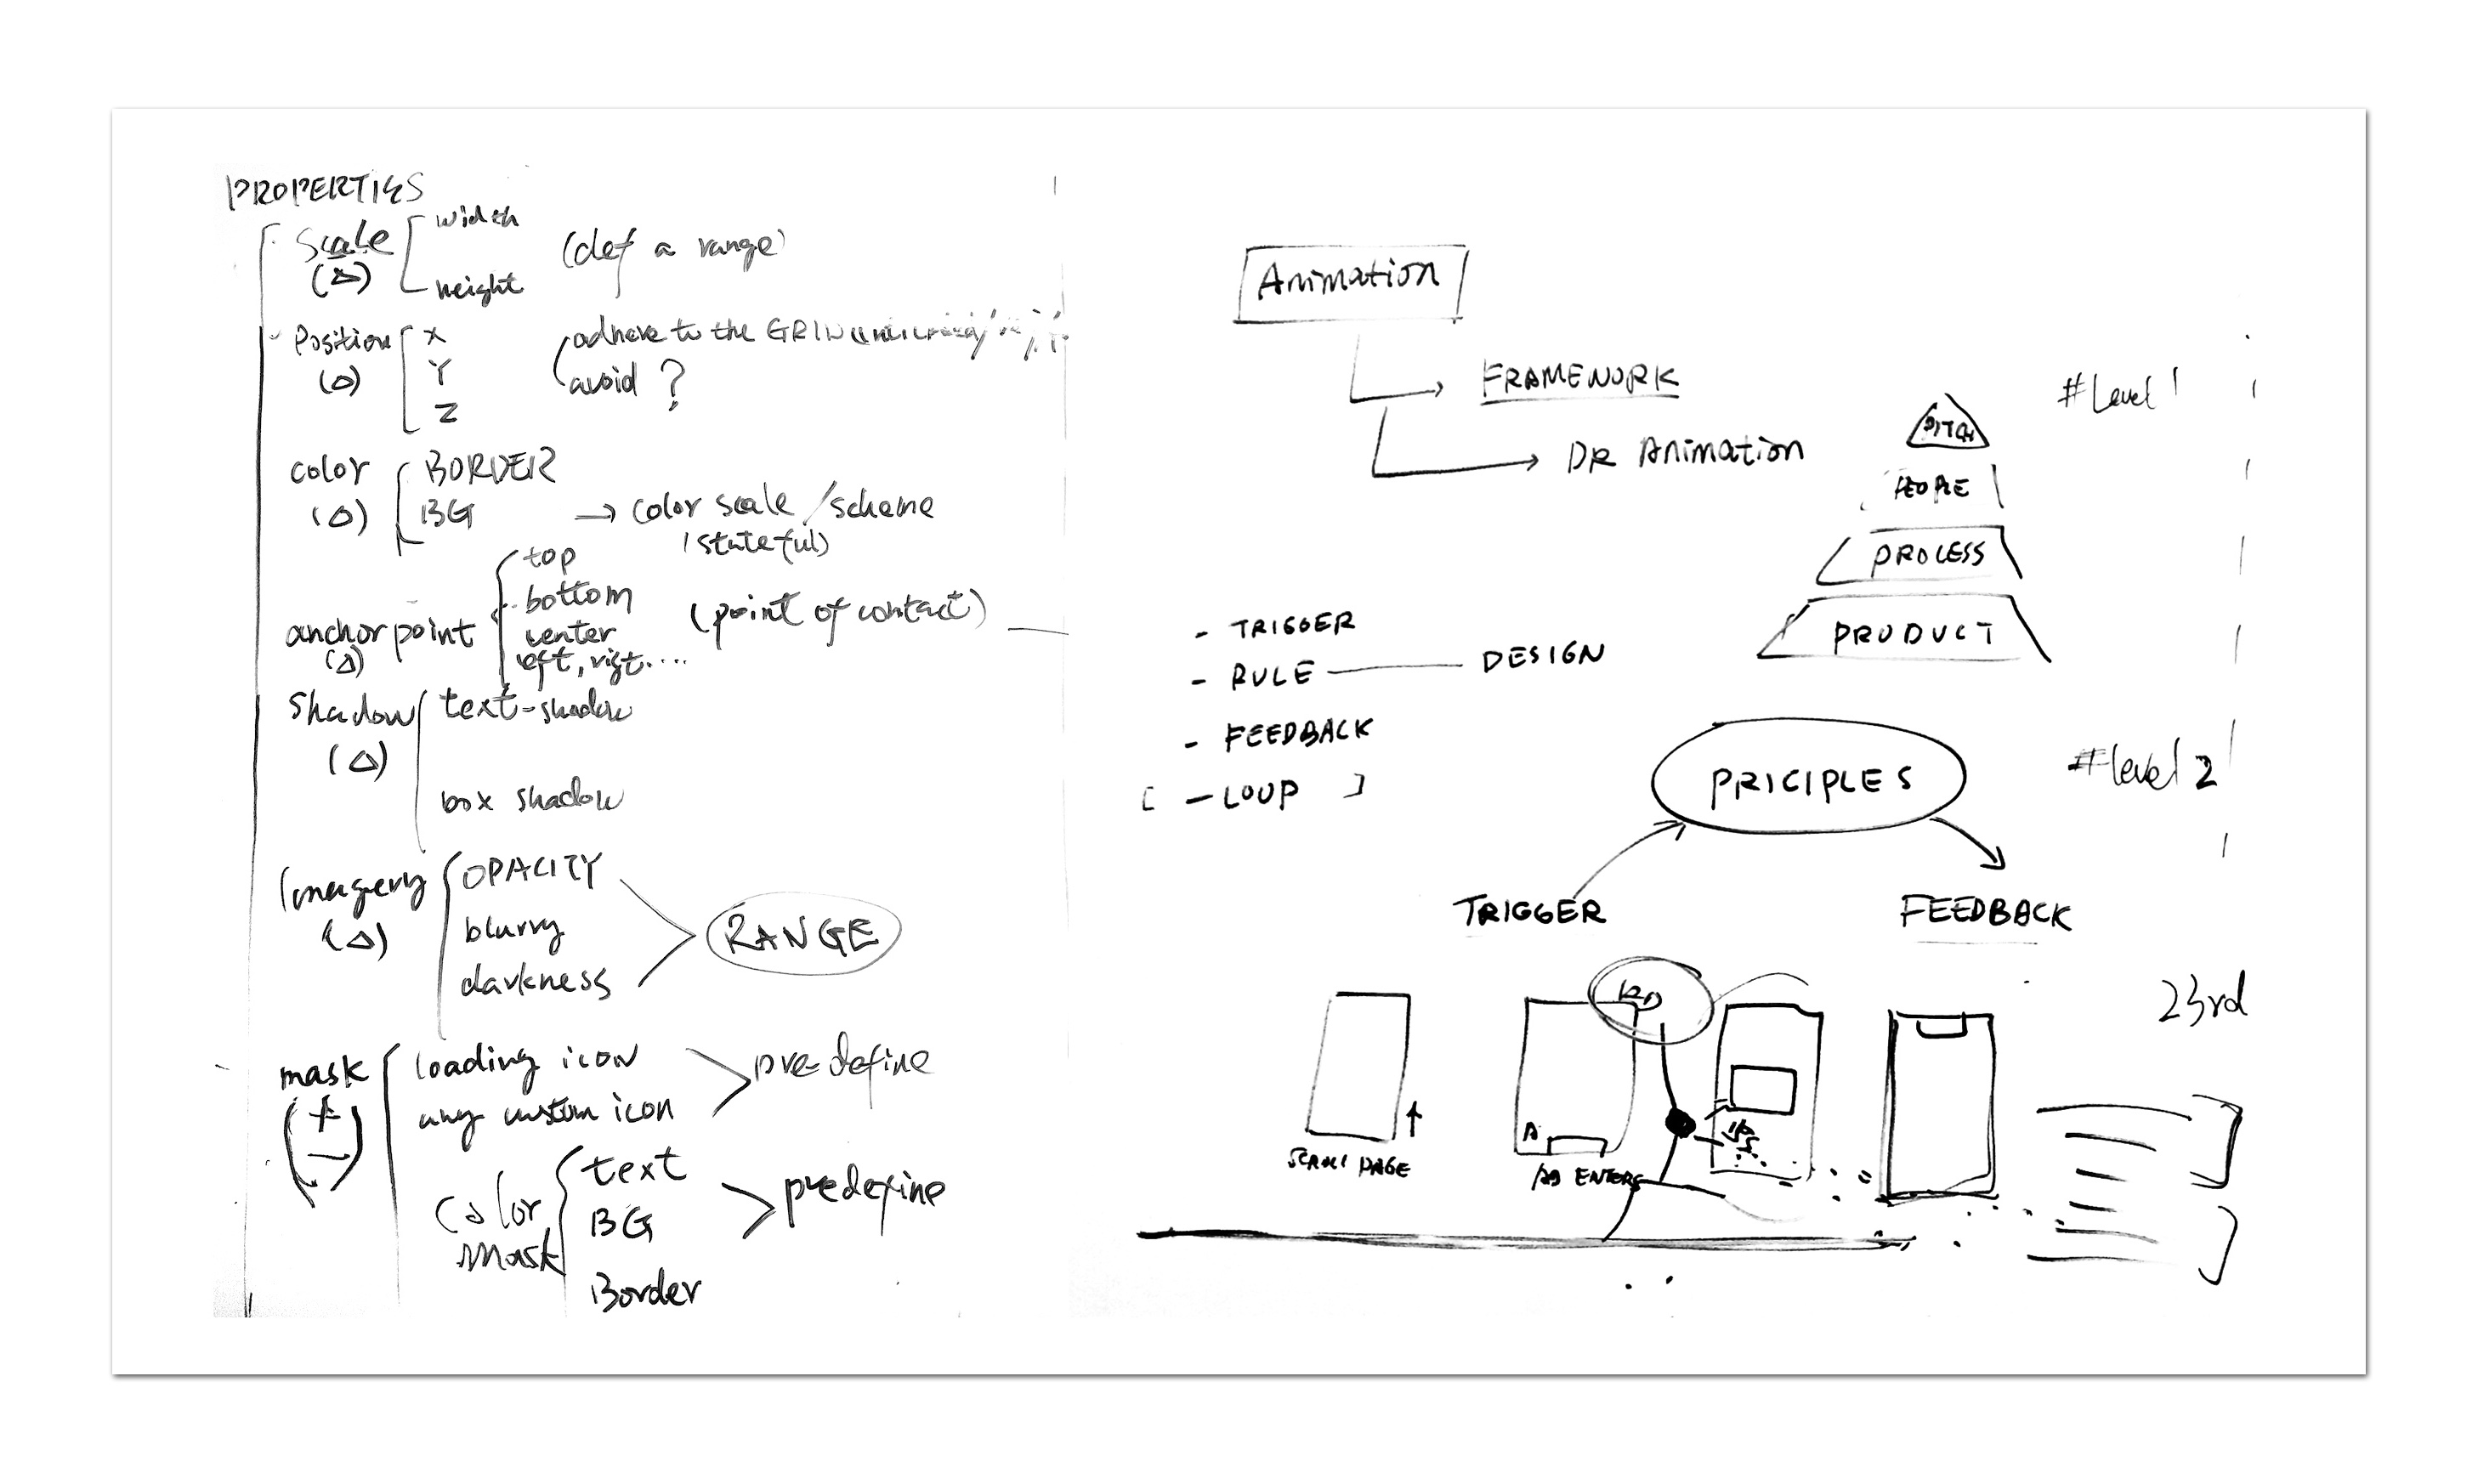 PROPERTIES
Scale
(Δ)
width
height
(def a range)
Position
(Δ)
X
Y
Z
adhere to the
avoid ?
color
(Δ)
BORDER
BG
→ color scale / scheme
(stateful)
anchor point
(Δ)
top
bottom
center
left, right....
(point of contact)
Shadow
(Δ)
text-shadow
box shadow
Imagery
(Δ)
OPACITY
blurry
darkness
RANGE
mask
(+ −)
loading icon
any custom icon
pre-define
Color
mask
text
BG
Border
predefine
Animation
FRAMEWORK
DR Animation
#Level 1
PEOPLE
PROCESS
PRODUCT
- TRIGGER
- RULE
DESIGN
- FEEDBACK
[ - LOUP ]
PRICIPLES
#level 2
TRIGGER
FEEDBACK
23rd
PAGE
ENTERS